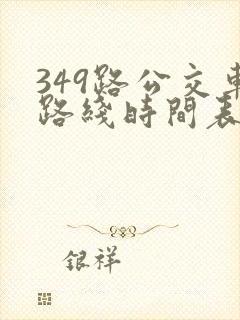 349路公交車
路綫時間表
銀祥